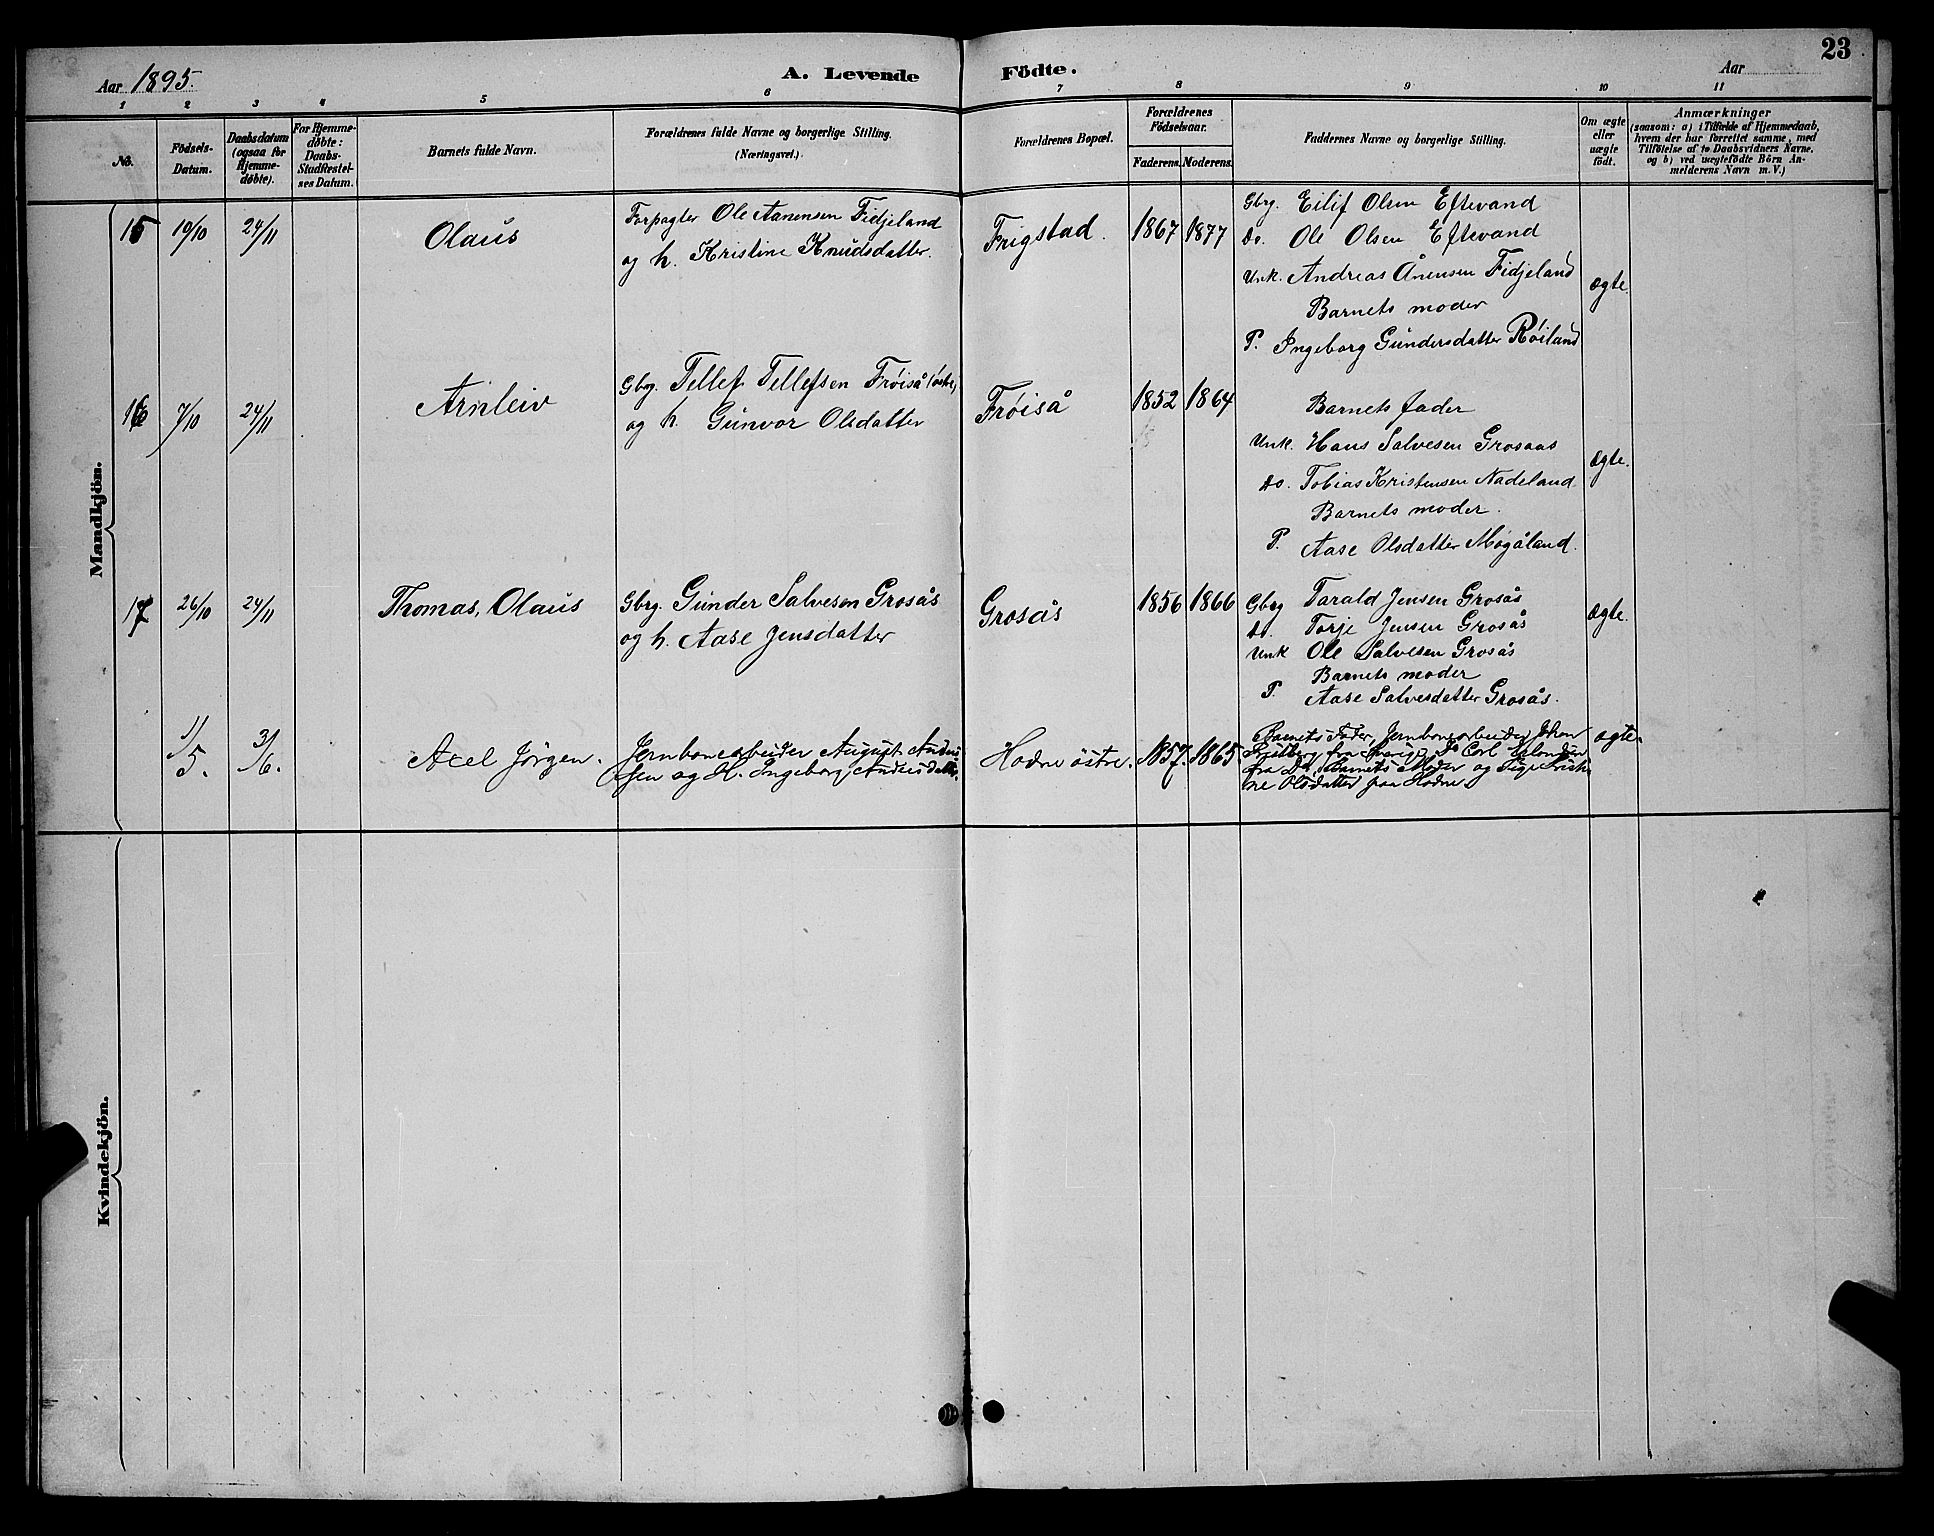 Aar 1895.
A. Levende
Födte.
Aar
23
1 2 3 4 5 6 7 8 9 10 11
No.
Fødsels-
Datum.
Daabsdatum
(ogsaa for
Hjemme-
døbte).
For Hjemme-
døbte:
Daabs-
Stadfæstel-
ses Datum.
Barnets fulde Navn.
Forældrenes fulde Navne og borgerlige Stilling.
(Næringsvei.)
Forældrenes Bopæl.
Forældrenes
Fødselsaar.
Faderens. Moderens.
Faddernes Navne og borgerlige Stilling.
Om ægte
eller
uægte
født.
Anmærkninger
(saasom: a) i Tilfælde af Hjemmedaab,
hvem der har forrettet samme, med
Tilføielse af to Daabsvidners Navne.
og b) ved uægtefødte Börn An-
melderens Navn m.V.)
Mandkjön.
15 19/10 24/11 Olaus
Forpagter Ole Aanensen Fidjeland
og h. Kristine Knudsdatter.
Frigstad. 1867 1877
Gbrg. Eilif Olsen Eftevand
Do. Ole Olsen Eftevand
Unk. Andreas Ånensen Fidjeland
Barnets moder
P. Ingeborg Gundersdatter Røiland
ægte.
16 7/10 24/11 Arnleiv
Gbrg. Tellef Tellefsen Frøiså (østre)
og h. Gunvor Olsdatter
Frøiså 1852 1864
Barnets fader
Unk. Hans Salvesen Grosaas
Do. Tobias Kristensen Nadeland
Barnets moder.
P. Aase Olsdatter Mogåland.
ægte.
17 26/10 24/11 Thomas, Olaus
Gbrg. Gunder Salvesen Grosås
og h. Aase Jensdatter
Grosås 1856 1866
Gbrg Tarald Jensen Grosås
Do. Torje Jensen Grosås
Unk Ole Salvesen Grosås
Barnets moder
P. Aase Salvesdatter Grosås.
ægte.
1/5. 3/6. Axel Jörgen.
Jernbanearbeider August Andrea
sen og H. Ingeborg Andersdatter.
Hodne östre. 1857. 1865
Barnets Fader, Jernbanearbeider Johan
fra Sverig, Do Carl
fra Do, Barnets Moder og Pige Kristi
ne Olsdatter fra Hodne
ægte.
Kvindekjön.